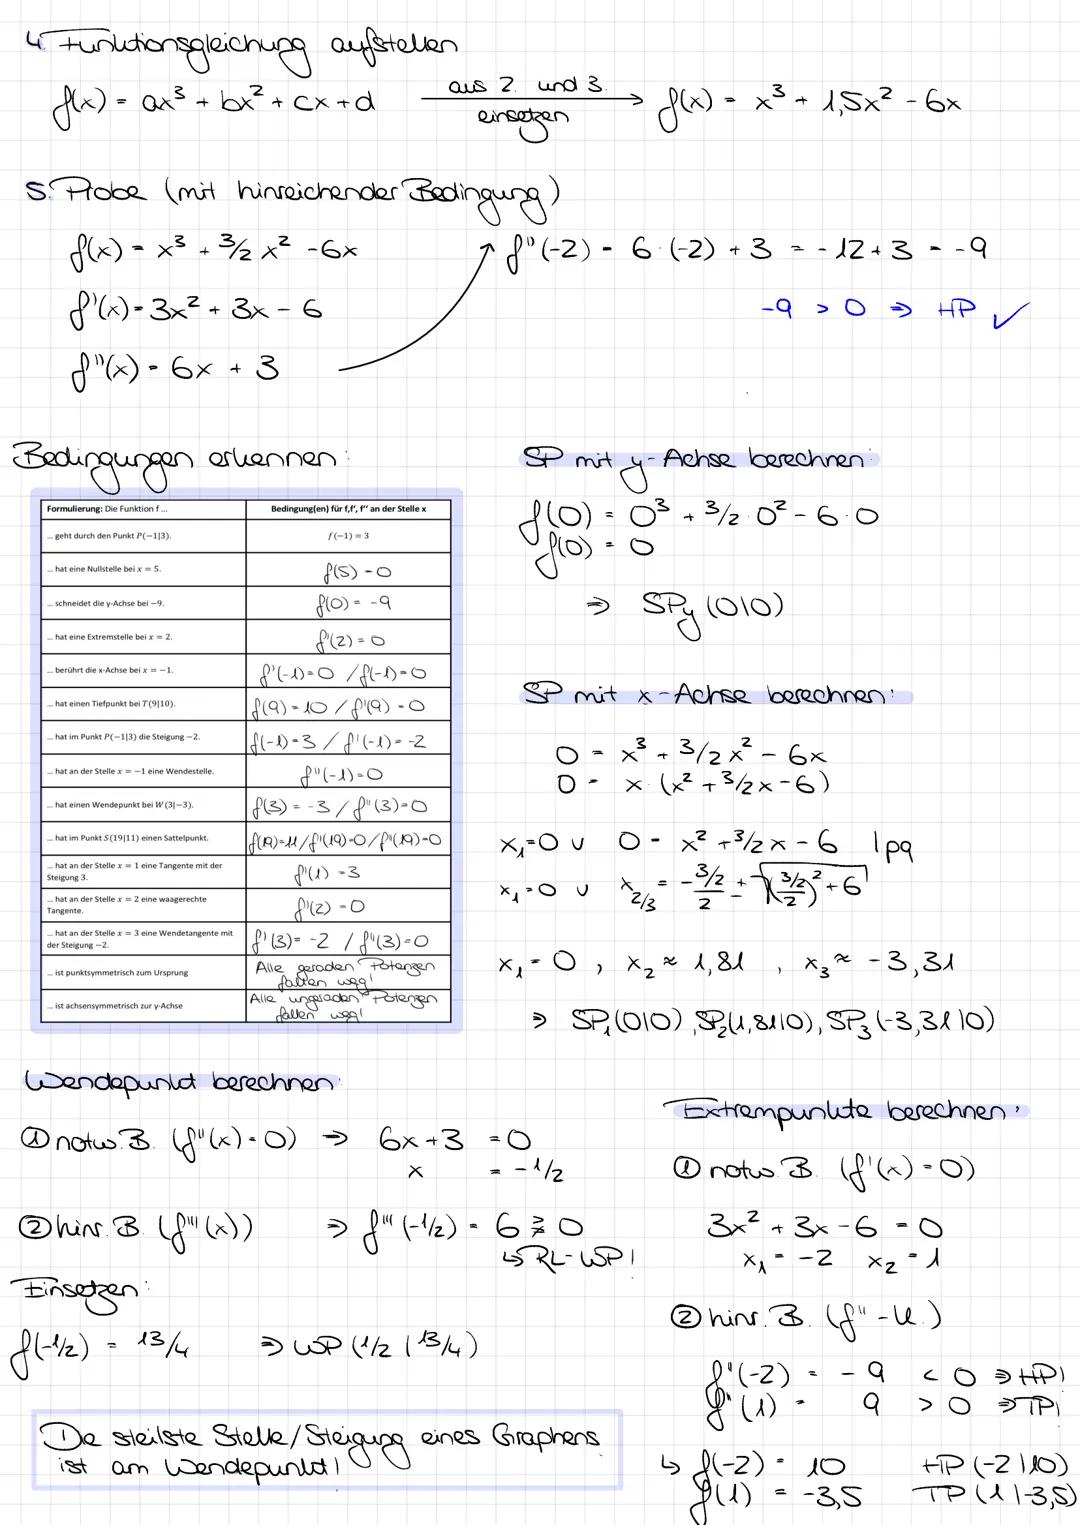 4. Funktionsgleichung aufstellen
f(x) = ax³ + bx² + cx + d aus 2. und 3. einsetzen → f(x) = x³ + 1,5x² - 6x
5. Probe (mit hinreichender Bedingung)
f(x) = x³ + 3/2 x² - 6x
f''(-2) = 6·(-2) + 3 = -12 + 3 = -9
f'(x) = 3x² + 3x - 6
-9 > 0 ⇒ HP ✓
f''(x) = 6x + 3
Bedingungen erkennen:
Formulierung: Die Funktion f ... Bedingung(en) für f,f', f'' an der Stelle x
... geht durch den Punkt P(−1|3). f(−1) = 3
... hat eine Nullstelle bei x = 5. f(5) = 0
... schneidet die y-Achse bei −9. f(0) = -9
... hat eine Extremstelle bei x = 2. f'(2) = 0
... berührt die x-Achse bei x = −1. f'(-1)=0 / f(-1)=0
... hat einen Tiefpunkt bei T(9|10). f(9)=10 / f'(9)=0
... hat im Punkt P(−1|3) die Steigung −2. f(-1)=3 / f'(-1)=-2
... hat an der Stelle x = −1 eine Wendestelle. f''(-1)=0
... hat einen Wendepunkt bei W(3|−3). f(3)=-3 / f''(3)=0
... hat im Punkt S(19|11) einen Sattelpunkt. f(19)=11 / f'(19)=0 / f''(19)=0
... hat an der Stelle x = 1 eine Tangente mit der
Steigung 3. f'(1) = 3
... hat an der Stelle x = 2 eine waagerechte
Tangente. f'(2) = 0
... hat an der Stelle x = 3 eine Wendetangente mit
der Steigung −2. f'(3)=-2 / f''(3)=0
... ist punktsymmetrisch zum Ursprung Alle geraden Potenzen
fallen weg!
... ist achsensymmetrisch zur y-Achse Alle ungeraden Potenzen
fallen weg!
SP mit y-Achse berechnen:
f(0) = 0³ + 3/2·0² - 6·0
f(0) = 0
⇒ SPy (0|0)
SP mit x-Achse berechnen:
0 = x³ + 3/2x² - 6x
0 = x·(x² + 3/2x - 6)
x₁=0 ∪ 0 = x² + 3/2x - 6 |pq
x₁=0 ∪ x₂/₃ = -(3/2)/2 ± √((3/2)/2)² + 6
x₁=0, x₂ ≈ 1,81, x₃ ≈ -3,31
⇒ SP₁(0|0), SP₂(1,81|0), SP₃(-3,31|0)
Wendepunkt berechnen:
① notw. B. (f''(x)=0) ⇒ 6x+3 = 0
x = -1/2
② hinr. B. (f'''(x)) ⇒ f'''(-1/2) = 6 ≷ 0
↳ RL-WP!
Einsetzen:
f(-1/2) = 13/4 ⇒ WP (1/2 | 13/4)
Die steilste Stelle/Steigung eines Graphens
ist am Wendepunkt!
Extrempunkte berechnen:
① notw. B. (f'(x)=0)
3x² + 3x - 6 = 0
x₁ = -2 x₂ = 1
② hinr. B. (f''-K.)
f''(-2) = -9 < 0 ⇒ HP!
f''(1) = 9 > 0 ⇒ TP!
↳ f(-2) = 10 HP (-2|10)
f(1) = -3,5 TP (1|-3,5)